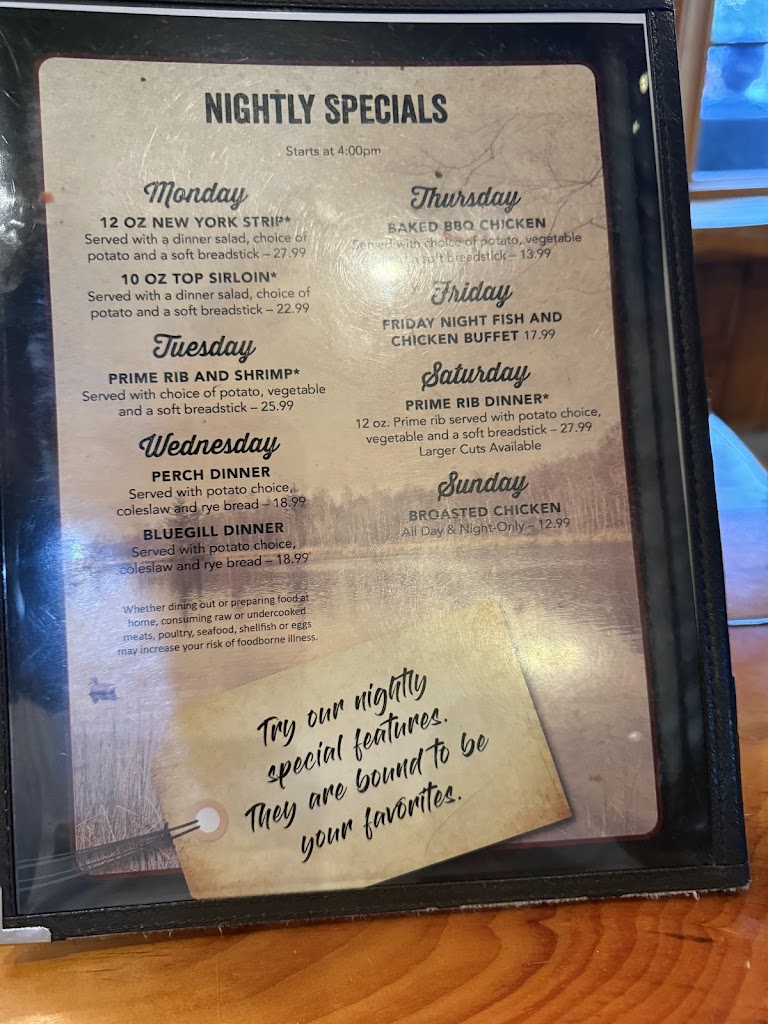 NIGHTLY SPECIALS
Starts at 4:00pm
Monday
12 OZ NEW YORK STRIP*
Served with a dinner salad, choice of
potato and a soft breadstick – 27.99
10 OZ TOP SIRLOIN*
Served with a dinner salad, choice of
potato and a soft breadstick – 22.99
Tuesday
PRIME RIB AND SHRIMP*
Served with choice of potato, vegetable
and a soft breadstick – 25.99
Wednesday
PERCH DINNER
Served with potato choice,
coleslaw and rye bread – 18.99
BLUEGILL DINNER
Served with potato choice,
coleslaw and rye bread – 18.99
Whether dining out or preparing food at
home, consuming raw or undercooked
meats, poultry, seafood, shellfish or eggs
may increase your risk of foodborne illness.
Thursday
BAKED BBQ CHICKEN
Served with choice of potato, vegetable
a soft breadstick – 13.99
Friday
FRIDAY NIGHT FISH AND
CHICKEN BUFFET 17.99
Saturday
PRIME RIB DINNER*
12 oz. Prime rib served with potato choice,
vegetable and a soft breadstick – 27.99
Larger Cuts Available
Sunday
BROASTED CHICKEN
All Day & Night-Only – 12.99
Try our nightly
special features.
They are bound to be
your favorites.